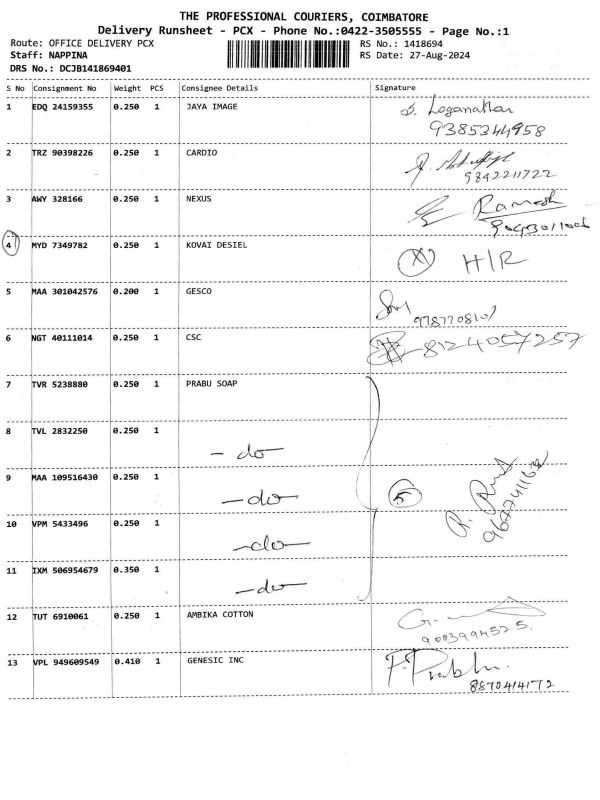 THE PROFESSIONAL COURIERS, COIMBATORE
Delivery Runsheet - PCX - Phone No.:0422-3505555 - Page No.:1
Route: OFFICE DELIVERY PCX RS No.: 1418694
Staff: NAPPINA RS Date: 27-Aug-2024
DRS No.: DCJB141869401
S No Consignment No Weight PCS Consignee Details Signature
1 EDQ 24159355 0.250 1 JAYA IMAGE S. Loganathan
9385344958
2 TRZ 90398226 0.250 1 CARDIO
9842211722
3 AWY 328166 0.250 1 NEXUS Ramesh
4 MYD 7349782 0.250 1 KOVAI DESIEL X H/R
5 MAA 301042576 0.200 1 GESCO
6 NGT 40111014 0.250 1 CSC 8124057257
7 TVR 5238880 0.250 1 PRABU SOAP
8 TVL 2832250 0.250 1
- do -
9 MAA 109516430 0.250 1
- do - 5
10 VPM 5433496 0.250 1
- do -
11 IXM 506954679 0.350 1
- do -
12 TUT 6910061 0.250 1 AMBIKA COTTON
9003994525
13 VPL 949609549 0.410 1 GENESIC INC P. Prabhu.
8870414172